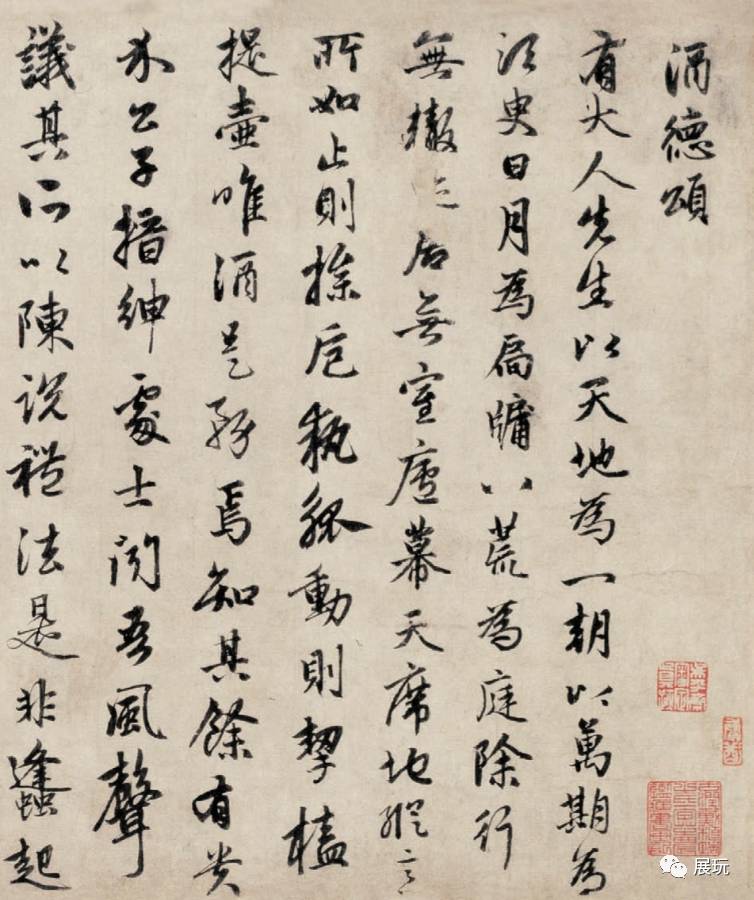 酒德頌
有大人先生以天地為一朝以萬期為
須臾日月為扃牖八荒為庭除行
無轍迹居無室廬幕天席地縱意
所如止則操卮執觚動則挈榼
提壺唯酒是務焉知其餘有貴
介公子搢紳處士聞吾風聲
議其所以陳說禮法是非蠭起
展玩